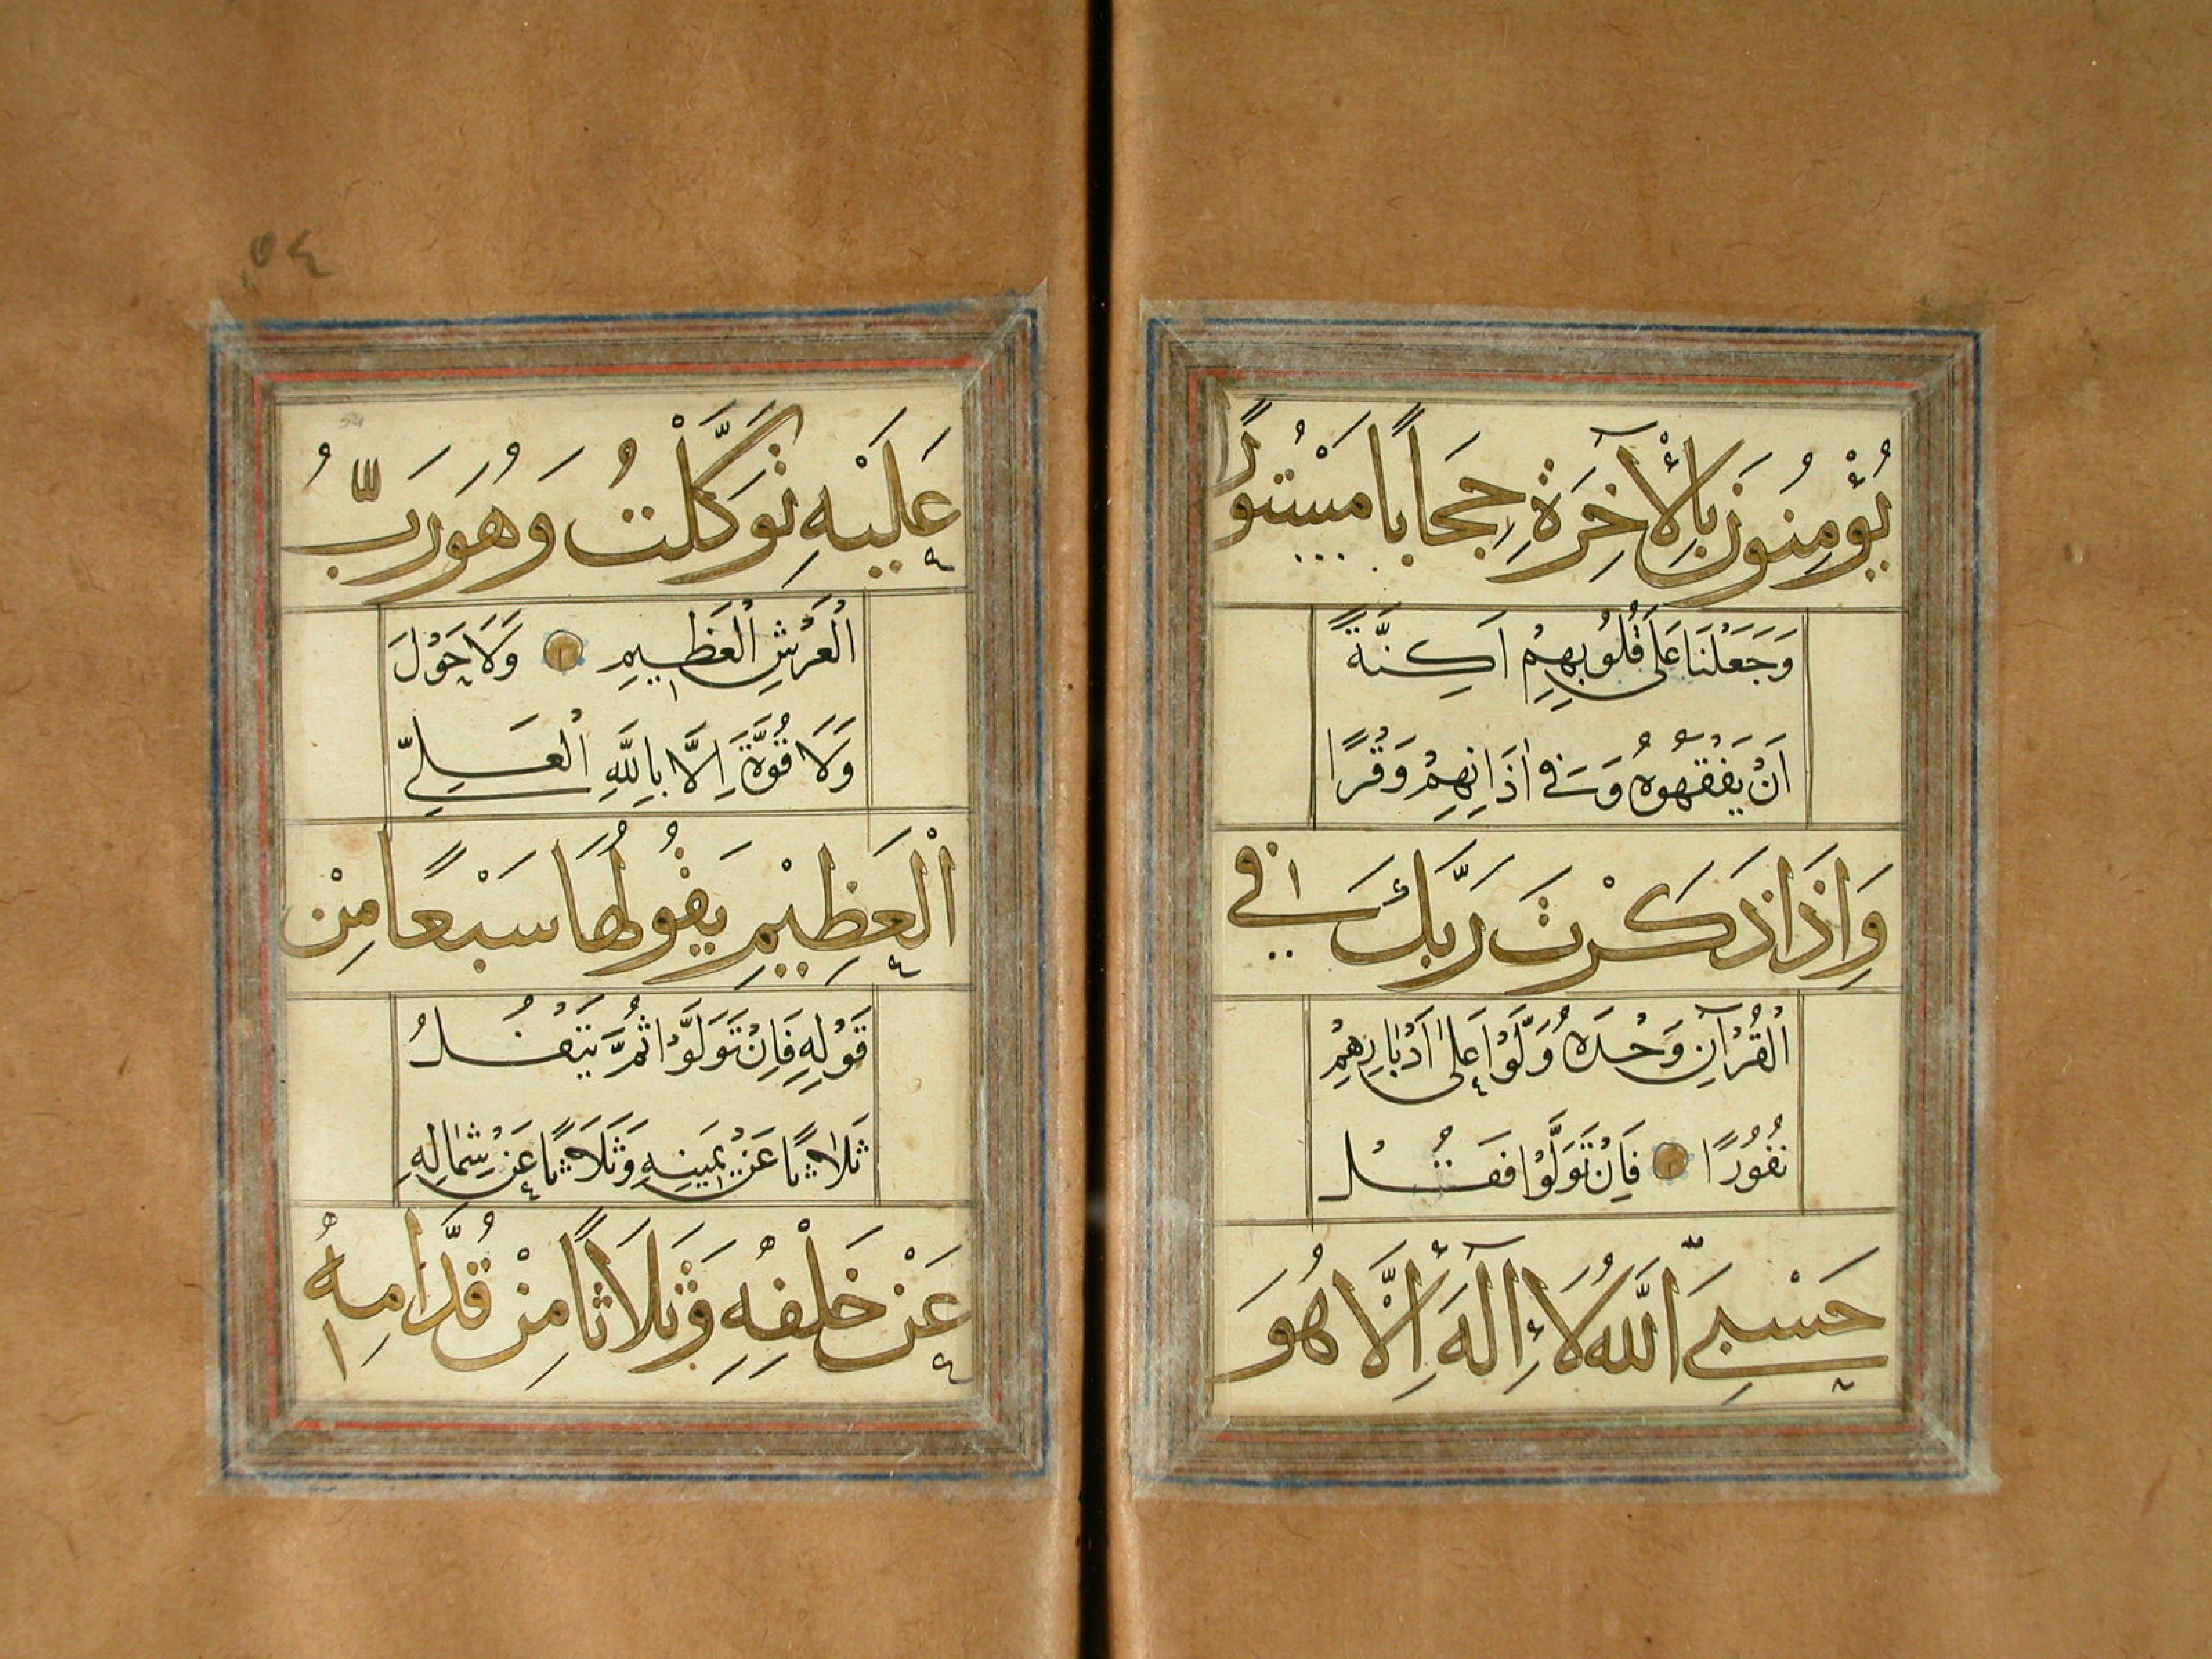 يُؤْمِنُونَ بِالْأٓخِرَةِ حِجَابًا مَسْتُورًا
وَجَعَلْنَا عَلَى قُلُوبِهِمْ اَكِنَّةً
اَنْ يَفْقَهُوهُ وَفِى اٰذَانِهِمْ وَقْرًا
وَاِذَا ذَكَرْتَ رَبَّكَ فِى
الْقُرْآنِ وَحْدَهُ وَلَّوْا عَلٰى اَدْبَارِهِمْ
نُفُورًا فَاِنْ تَوَلَّوْا فَقُلْ
حَسْبِىَ اللّٰهُ لَا إِلٰهَ إِلَّا هُوَ
٥٤
عَلَيْهِ تَوَكَّلْتُ وَهُوَ رَبُّ
الْعَرْشِ الْعَظِيمِ وَلَا حَوْلَ
وَلَا قُوَّةَ اِلَّا بِاللّٰهِ الْعَلِىِّ
الْعَظِيْمِ يَقُولُهَا سَبْعًا مِنْ
قَوْلِهِ فَاِنْ تَوَلَّوْا ثُمَّ يَتْفُلُ
ثَلَاثًا عَنْ يَمِينِهِ وَثَلَاثًا عَنْ شِمَالِهِ
عَنْ خَلْفِهِ وَثَلَاثًا مِنْ قُدَّامِهِ